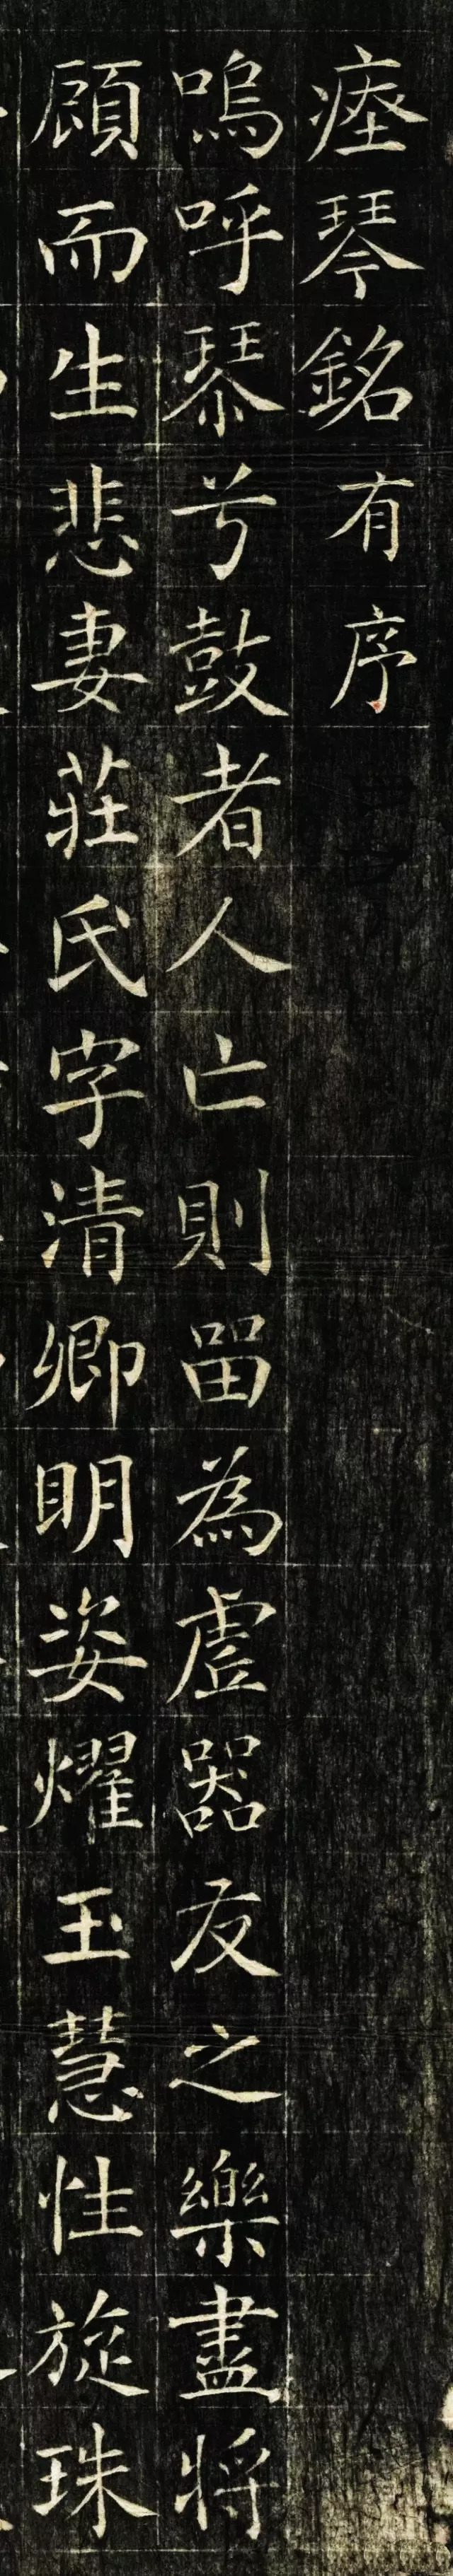 瘞琴銘有序
嗚呼琴兮鼓者人亡則畱為虗器友之樂盡將
顧而生悲妻莊氏字清卿明姿燿玉慧性旋珠